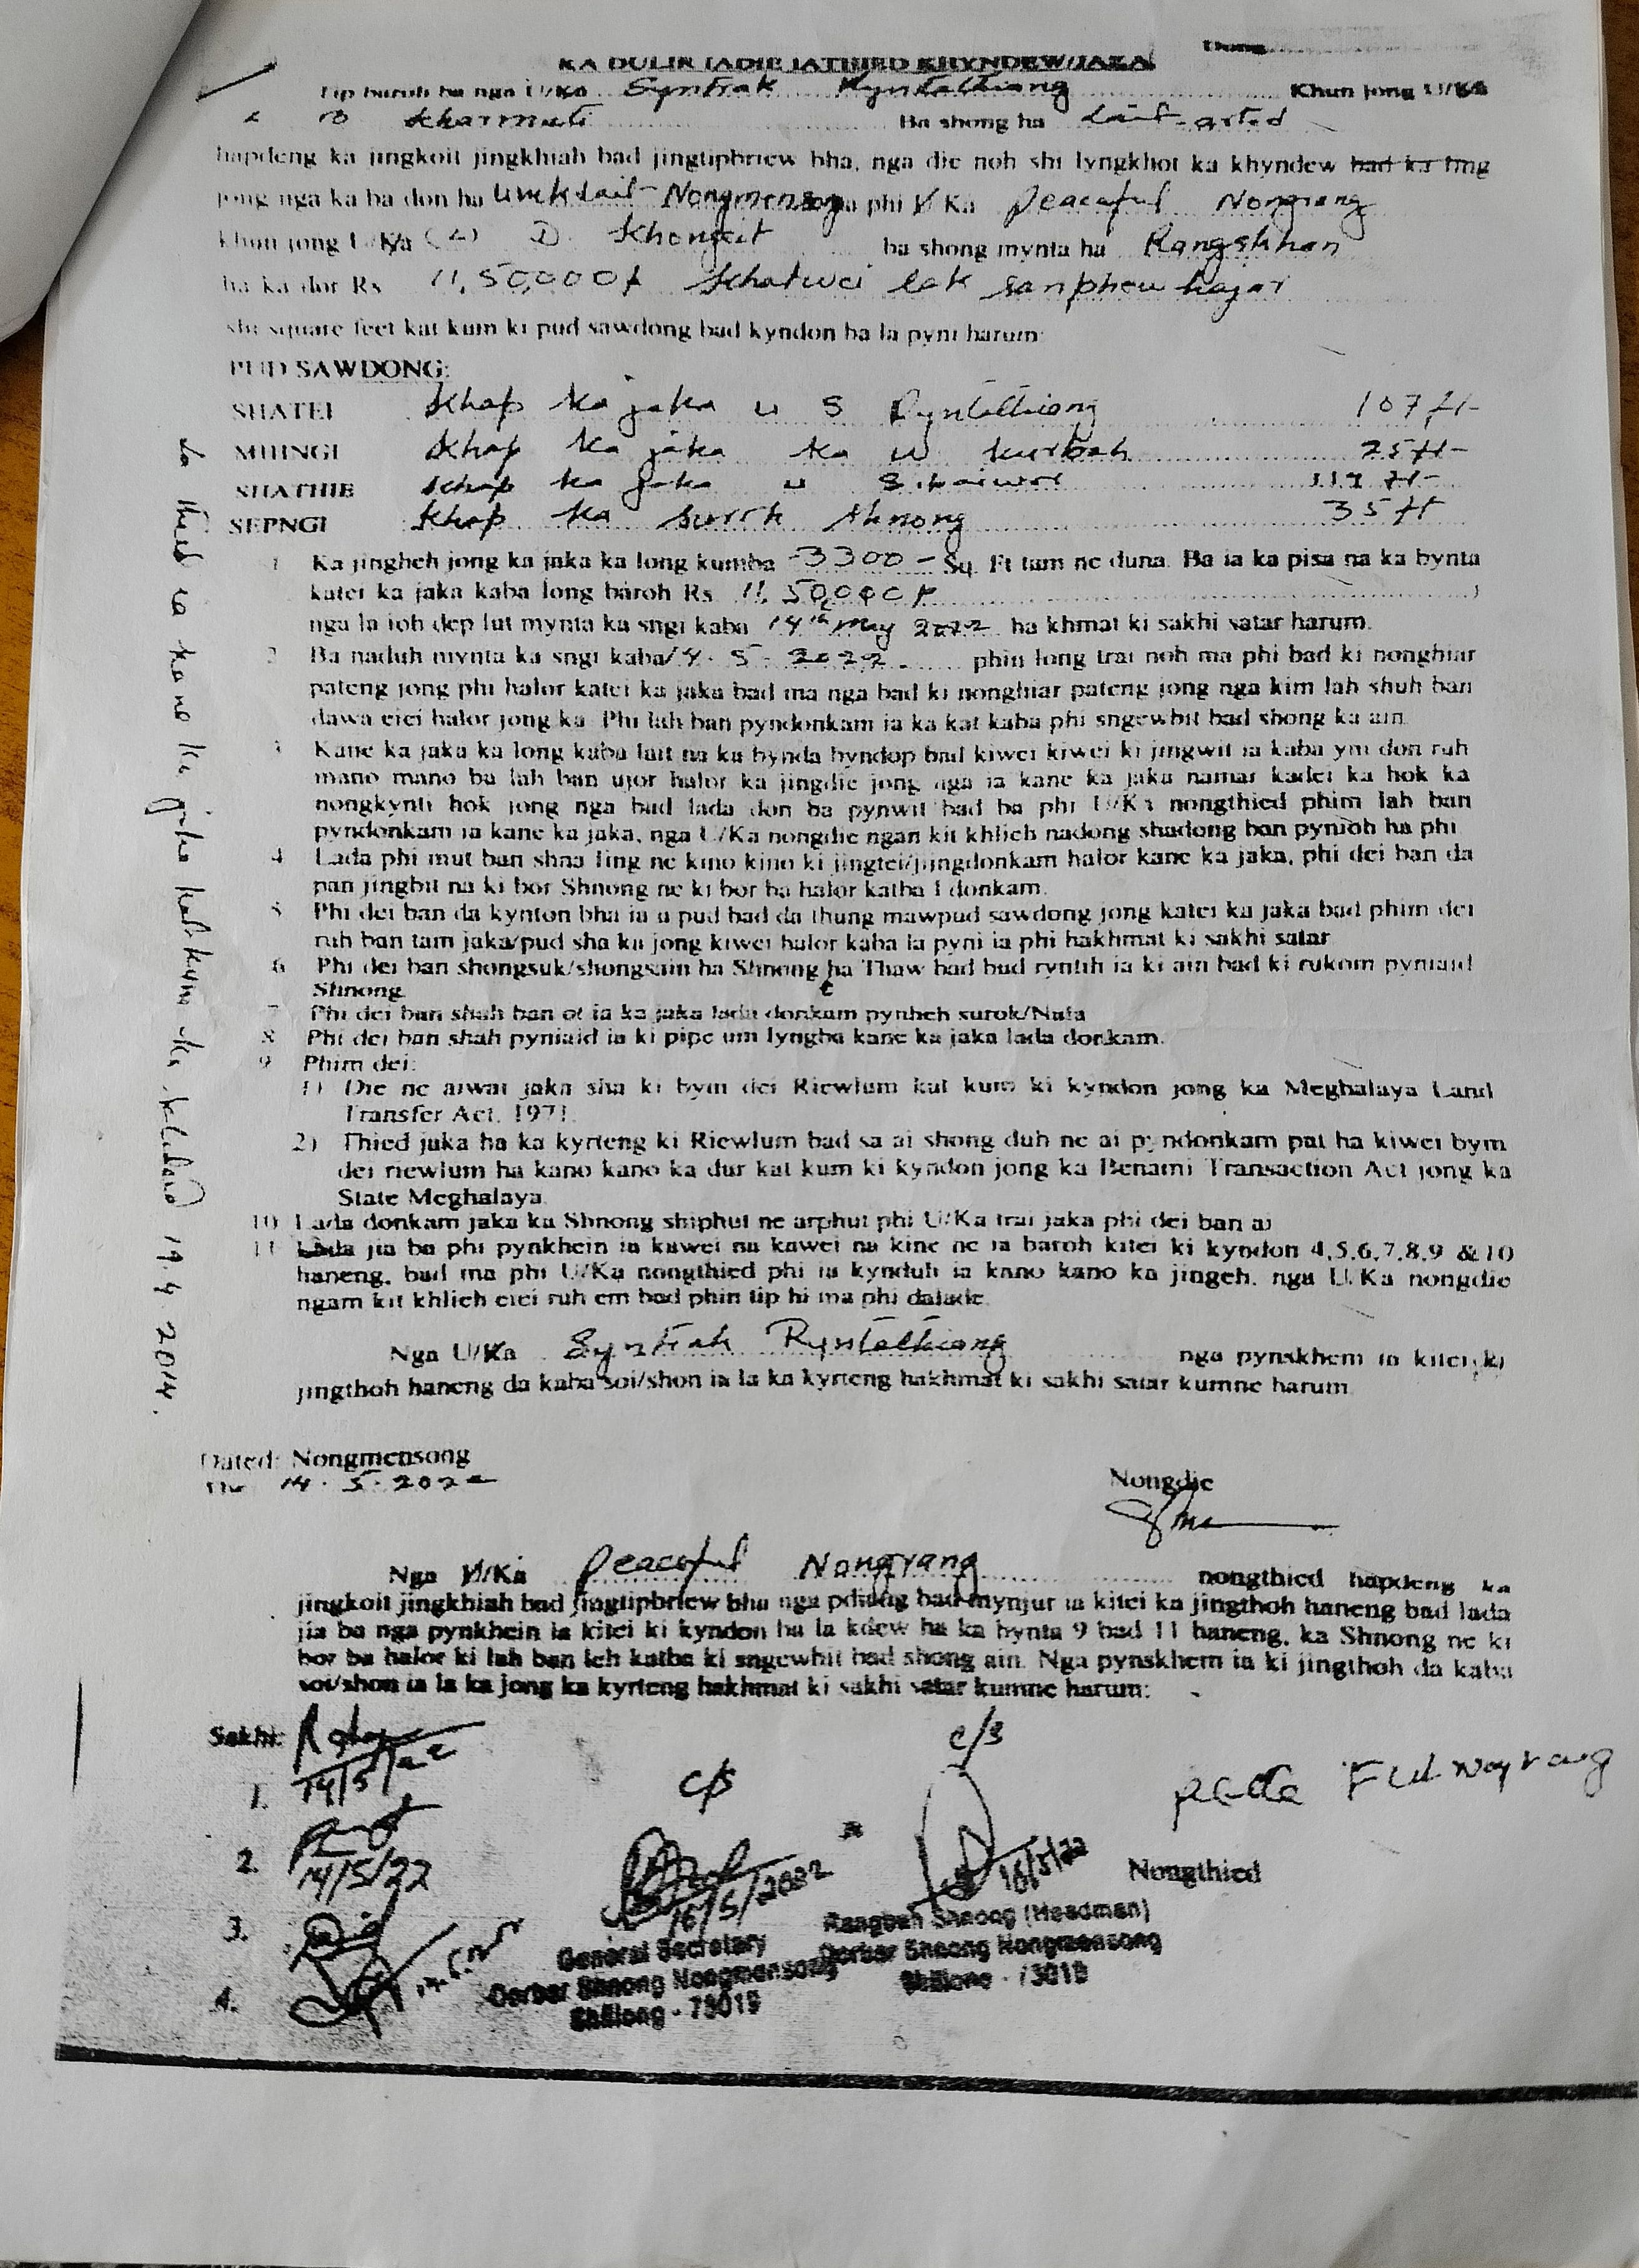 KA DULIR IADIE IATHIED KHYNDEW/JAKA
Tip baroh ba nga U/Ka Syntrak Ryntathiang Khun jong U/Ka
Kharmuti Ba shong ha
hapdeng ka jingkoit jingkhiah bad jingtipbriew bha, nga die noh shi lyngkhot ka khyndew bad ka ling
jong nga ka ba don ha Umksait-Nongmensong ha phi U/Ka Peaceful Nongrang
khun jong U/Ka (L) D. Khongsit ba shong mynta ha Rangshken
ha ka dor Rs 11,50,000/- Khatwei lak sanphew hajar
shi square feet kat kum ki pud sawdong bad kyndon ba la pyni harum:
PUD SAWDONG:
SHATEI Khap ka jaka u S Ryntathiang 107 ft-
MIHNGI Khap ka jaka ka W Kurbah 25 ft-
SHATHIE Khap ka jaka u 119 ft-
SEPNGI Khap ka surok shnong 35 ft
1 Ka jingheh jong ka jaka ka long kumba 3300 - Sq. Ft tam ne duna. Ba ia ka pisa na ka bynta
katei ka jaka kaba long baroh Rs 11,50,000/-
nga la ioh dep lut mynta ka sngi kaba 14th May 2022 ha khmat ki sakhi satar harum.
2 Ba naduh mynta ka sngi kaba 14.5.2022 phin long trai noh ma phi bad ki nonghiar
pateng jong phi halor katei ka jaka bad ma nga bad ki nonghiar pateng jong nga kim lah shuh ban
dawa eiei halor jong ka. Phi lah ban pyndonkam ia ka kat kaba phi sngewbit bad shong ka ain.
3 Kane ka jaka ka long kaba lait na ka bynda byndop bad kiwei kiwei ki jingwit ia kaba ym don ruh
mano mano ba lah ban ujor halor ka jingdie jong nga ia kane ka jaka namar kadei ka hok ka
nongkynti hok jong nga bad lada don ba pynwit bad ba phi U/Ka nongthied phim lah ban
pyndonkam ia kane ka jaka, nga U/Ka nongdie ngan kit khlieh nadong shadong ban pynioh ha phi
4 Lada phi mut ban shna Iing ne kino kino ki jingtei/jingdonkam halor kane ka jaka, phi dei ban da
pan jingbit na ki bor Shnong ne ki bor ba halor katba I donkam.
5 Phi dei ban da kynton bha ia u pud bad da thung mawpud sawdong jong katei ka jaka bad phim dei
ruh ban tam jaka/pud sha ka jong kiwei halor kaba la pyni ia phi hakhmat ki sakhi satar
6 Phi dei ban shongsuk/shongsain ha Shnong ha Thaw bad bud ryntih ia ki ain bad ki rukom pyniaid
Shnong.
7 Phi dei ban shah ban ot ia ka jaka lada donkam pynheh surok/Nala
8 Phi dei ban shah pyniaid ia ki pipe um lyngba kane ka jaka lada donkam.
9 Phim dei:
1) Die ne aiwai jaka sha ki bym dei Riewlum kat kum ki kyndon jong ka Meghalaya Land
Transfer Act, 1971.
2) Thied jaka ha ka kyrteng ki Riewlum bad sa ai shong duh ne ai pyndonkam pat ha kiwei bym
dei riewlum ha kano kano ka dur kat kum ki kyndon jong ka Benami Transaction Act jong ka
State Meghalaya.
10) Lada donkam jaka ka Shnong shiphut ne arphut phi U/Ka trai jaka phi dei ban ai
11 Lada jia ba phi pynkhein ia kawei na kawei na kine ne ia baroh kitei ki kyndon 4,5,6,7,8,9 & 10
haneng, bad ma phi U/Ka nongthied phi ia kynduh ia kano kano ka jingeh, nga U/Ka nongdie
ngam kit khlieh eiei ruh em bad phin tip hi ma phi dalade.
Nga U/Ka Syntrak Ryntathiang nga pynskhem ia kitei ki
jingthoh haneng da kaba soi/shon ia la ka kyrteng hakhmat ki sakhi satar kumne harum
Dated: Nongmensong
The 14.5.2022
Nongdie
Nga U/Ka Peaceful Nongrang nongthied hapdeng ka
jingkoit jingkhiah bad jingtipbriew bha nga pdiang bad mynjur ia kitei ka jingthoh haneng bad lada
jia ba nga pynkhein ia kitei ki kyndon ba la kdew ha ka bynta 9 bad 11 haneng, ka Shnong ne ki
bor ba halor ki lah ban leh katba ki sngewbit bad shong ain. Nga pynskhem ia ki jingthoh da kaba
soi/shon ia la ka jong ka kyrteng hakhmat ki sakhi satar kumne harum:
Sakhi:
1. 14/5/22
2. 14/5/22
3.
4.
C/S
16/5/2022
General Secretary
Dorbar Shnong Nongmensong
Shillong - 79301
C/S
16/5/22
Rangbah Shnong (Headman)
Dorbar Shnong Nongmensong
Shillong -
Nongthied